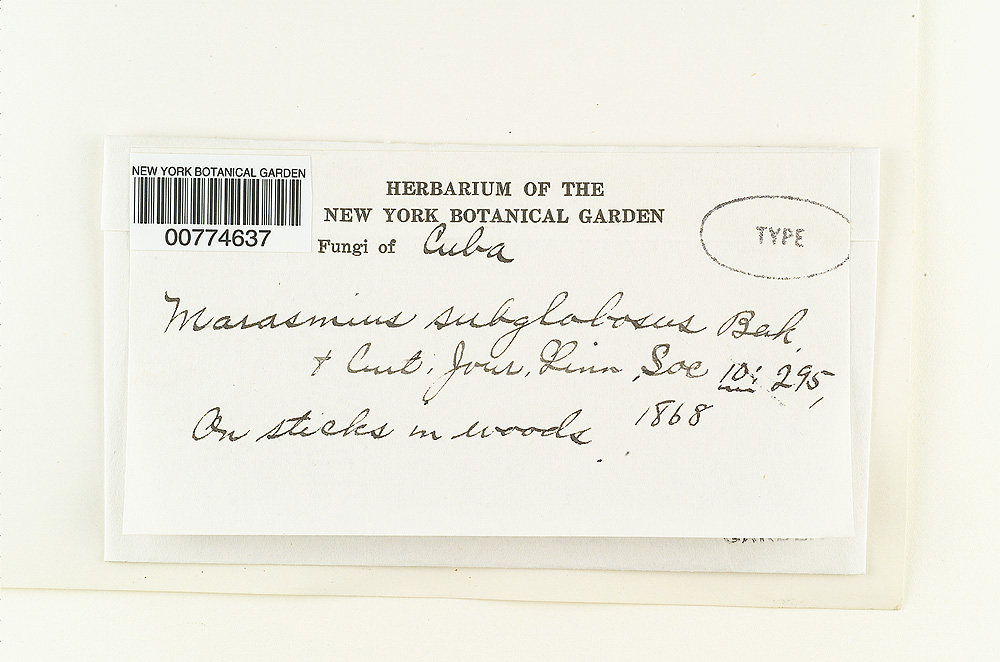 NEW YORK BOTANICAL GARDEN
00774637
HERBARIUM OF THE
NEW YORK BOTANICAL GARDEN
Fungi of Cuba
TYPE
Marasmius subglobosus Berk.
& Curt. Jour. Linn. Soc 10: 295,
1868
On sticks in woods.